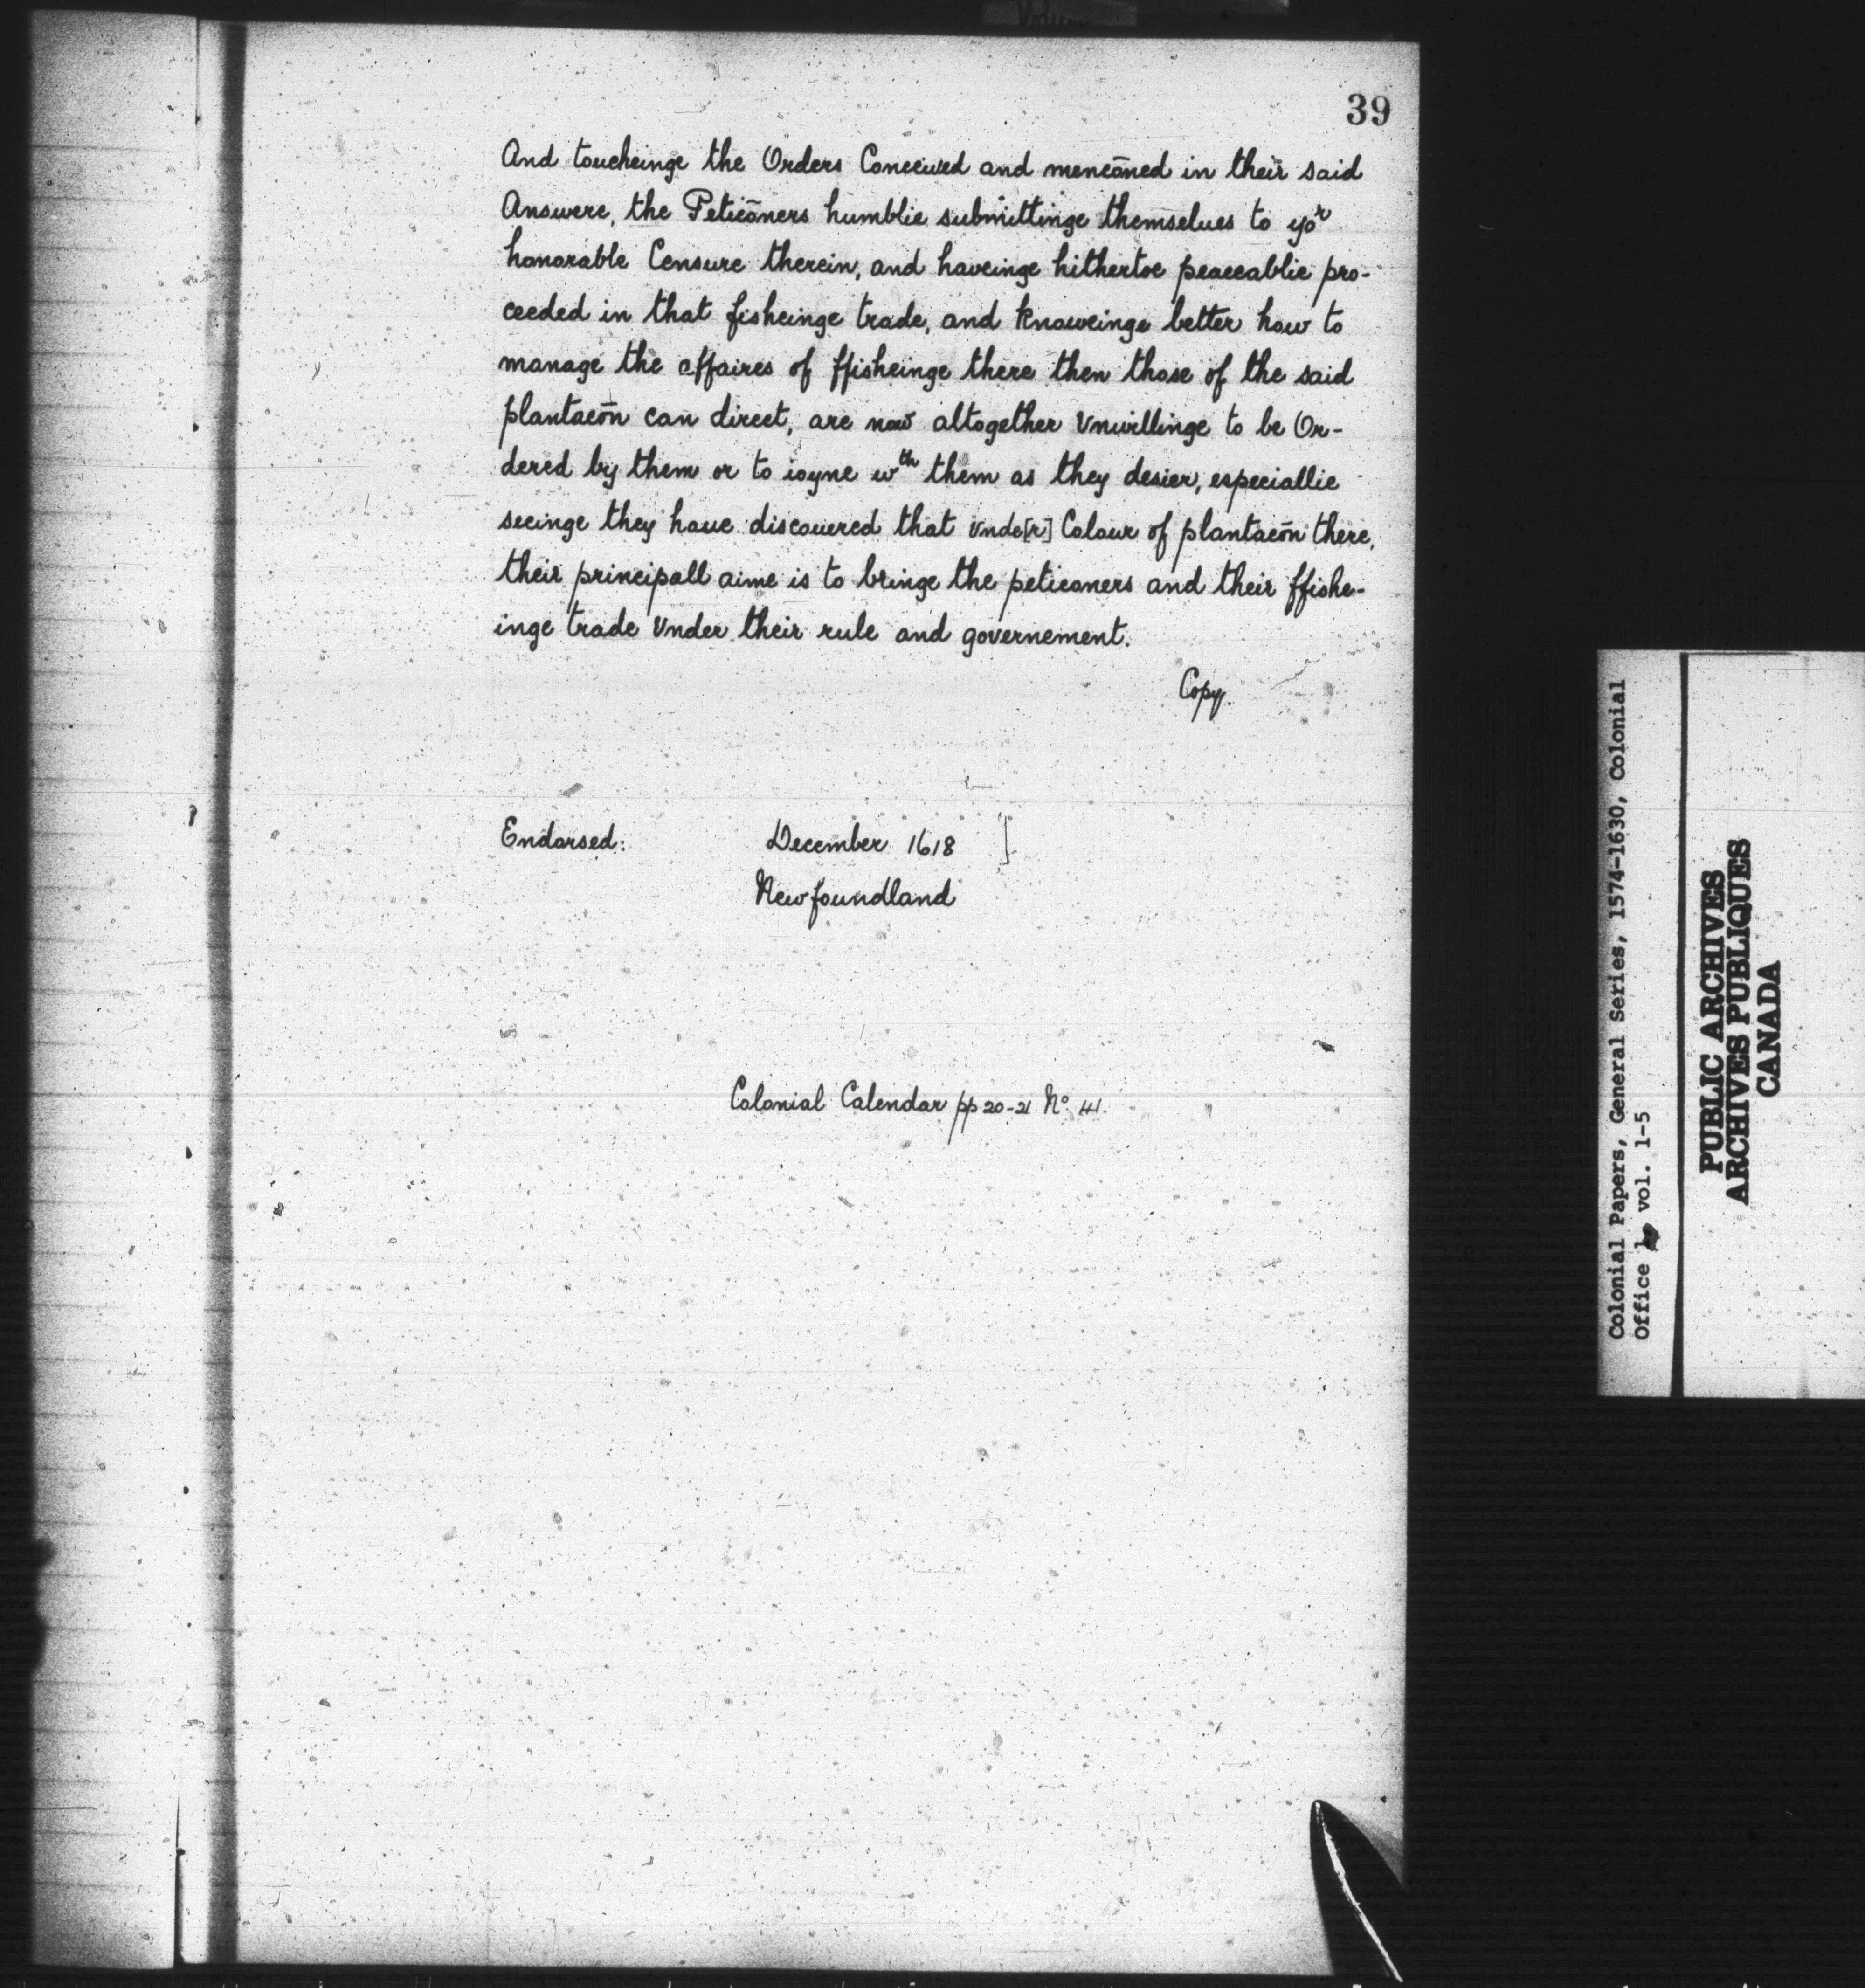 39
And toucheinge the Orders Conceived and mencōned in their said
Answere, the Peticōners humblie submittinge themselues to yoʳ
honorable Censure therein, and haveinge hithertoe peaceablie pro-
ceeded in that fisheinge trade, and knoweinge better how to
manage the affaires of ffisheinge there then those of the said
plantacōn can direct, are now altogether Vnwillinge to be Or-
dered by them or to ioyne wᵗʰ them as they desier, especiallie
seeinge they haue discouered that Vnde[r] Colour of plantacōn there,
their principall aime is to bringe the peticoners and their ffishe-
inge trade Vnder their rule and governement.
Copy.
Endorsed: December 1618
Newfoundland
Colonial Calendar pp 20-21 Nº 41.
Colonial Papers, General Series, 1574-1630, Colonial
Office vol. 1-5
PUBLIC ARCHIVES
ARCHIVES PUBLIQUES
CANADA